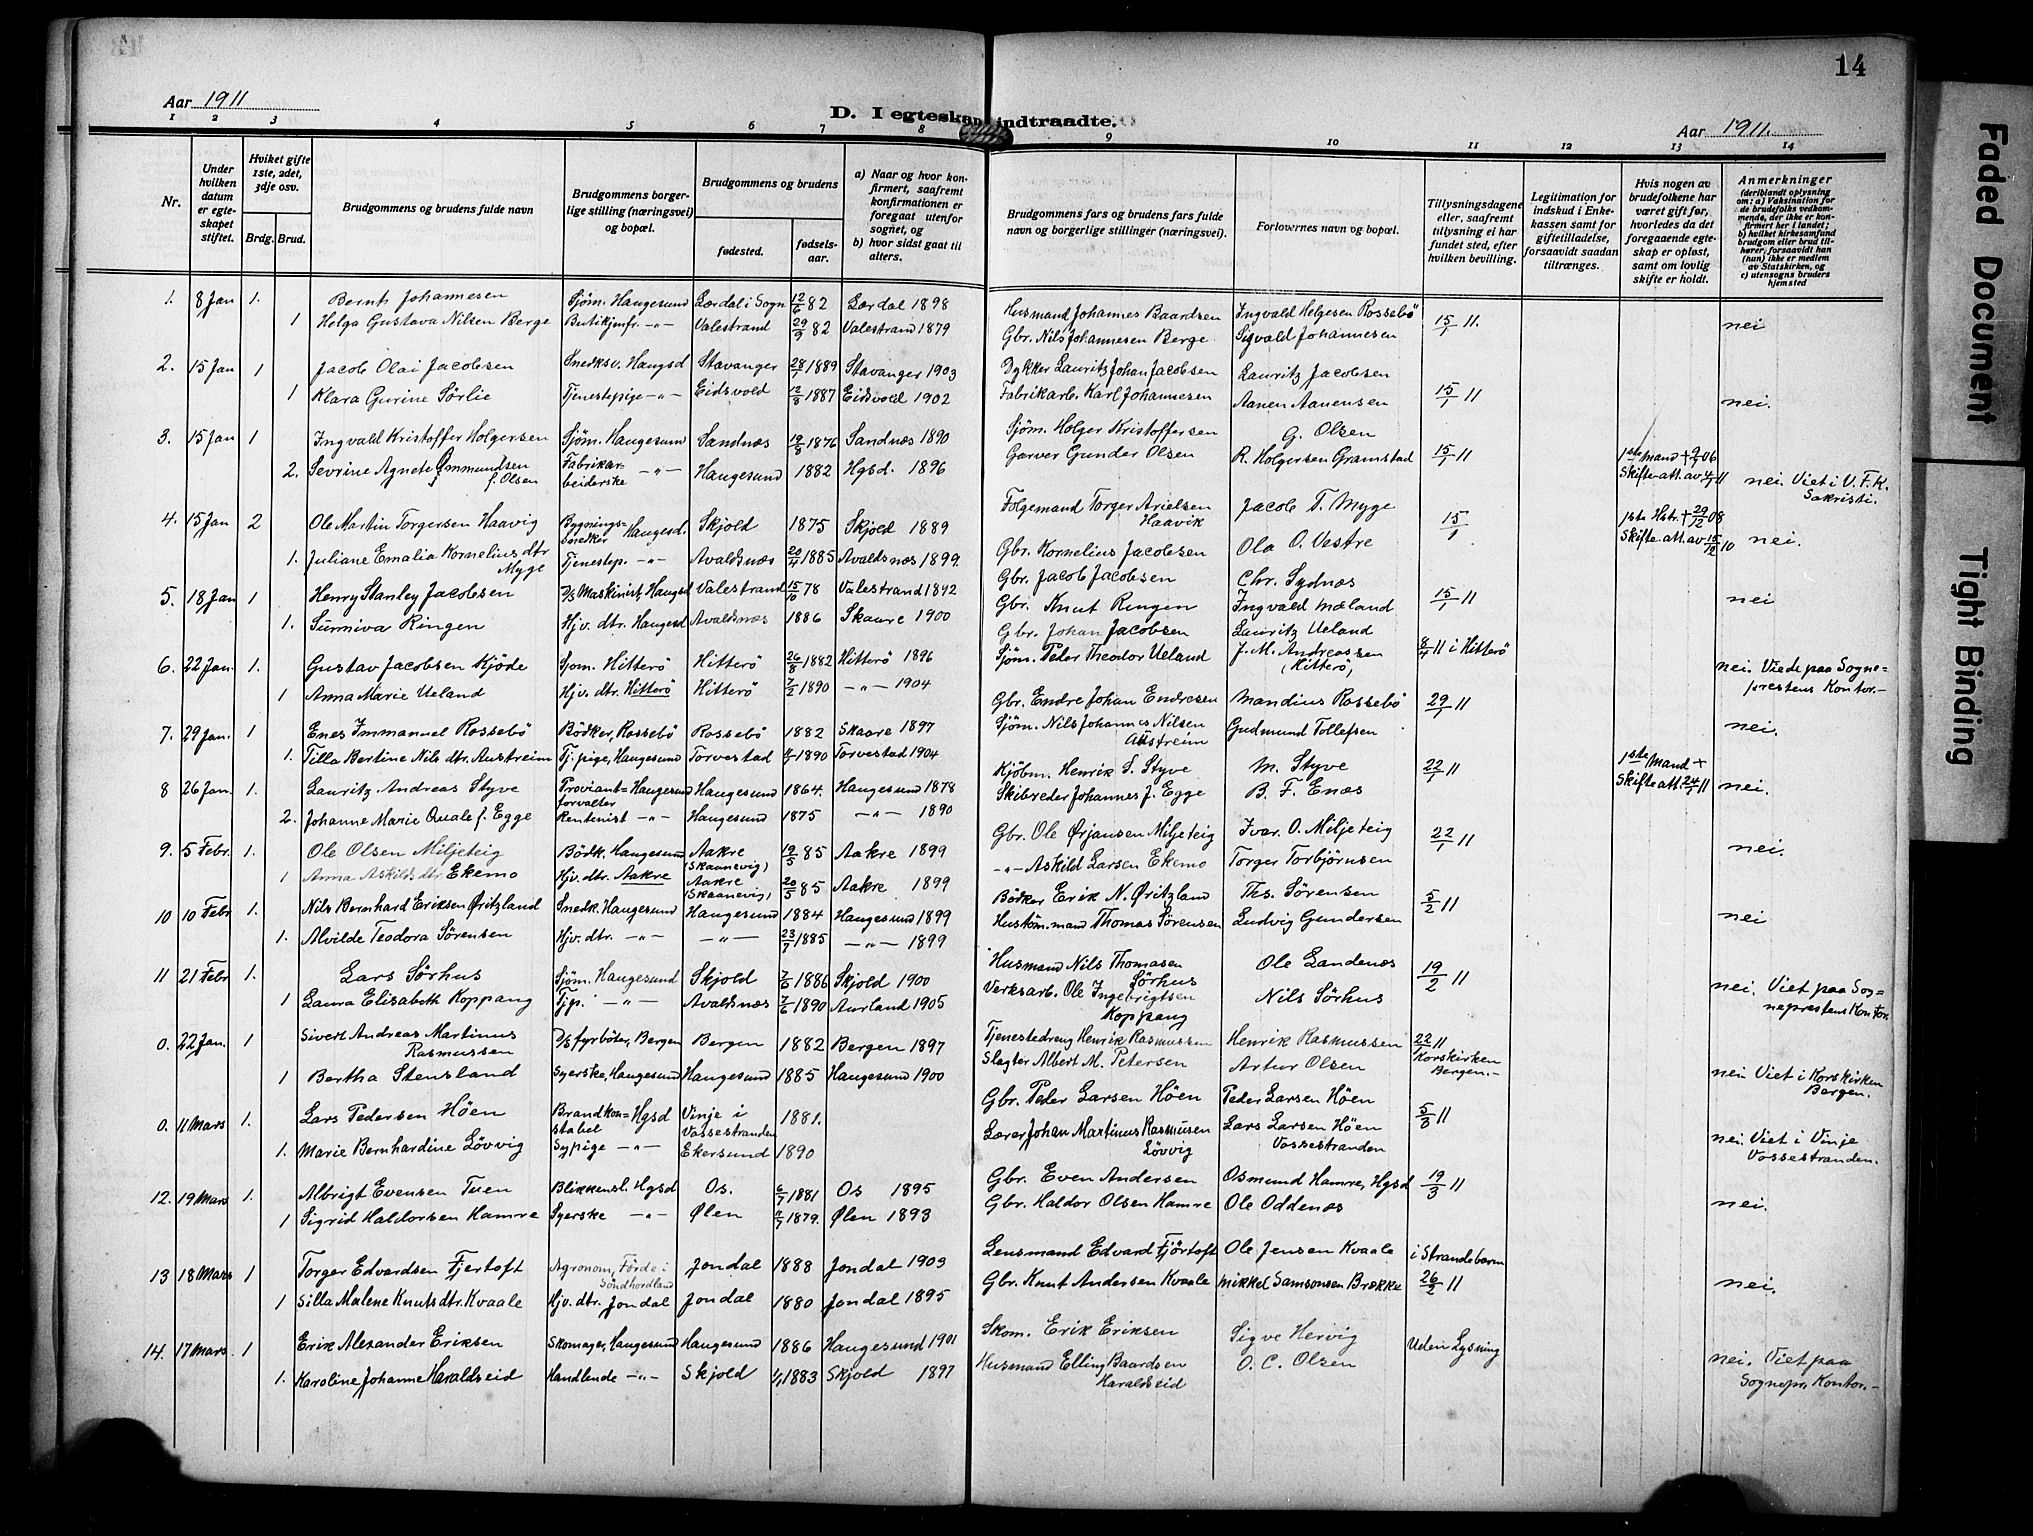 14
Aar 1911
D. I egteskap indtraadte.
Aar 1911.
1 2 3 4 5 6 7 8 9 10 11 12 13 14
Nr.
Under hvilken datum er egteskapet stiftet.
Hviket gifte 1ste, 2det, 3dje osv.
Brdg. Brud.
Brudgommens og brudens fulde navn
Brudgommens borgerlige stilling (næringsvei) og bopæl.
Brudgommens og brudens
fødested.
fødselsaar.
a) Naar og hvor konfirmert, saafremt konfirmationen er foregaat utenfor sognet, og
b) hvor sidst gaat til alters.
Brudgommens fars og brudens fars fulde navn og borgerlige stillinger (næringsvei).
Forlovernes navn og bopæl.
Tillysningsdagene eller, saafremt tillysning ei har fundet sted, efter hvilken bevilling.
Legitimation for indskud i Enkekassen samt for giftetilladelse, forsaavidt saadan tiltrænges.
Hvis nogen av brudefolkene har været gift før, hvorledes da det foregaaende egteskap er opløst, samt om lovlig skifte er holdt.
Anmerkninger
(deriblandt oplysning om: a) Vaksination for de brudefolks vedkommende, der ikke er konfirmert her i landet; b) hvilket kirkesamfund brudgom eller brud tilhører, forsaavidt han (hun) ikke er medlem av Statskirken, og c) utensogns bruders hjemsted
1. 8 Jan 1. Bernh. Johannesen Sjøm. Haugesund Lærdal i Sogn 12/6 82 Lærdal 1898 Husmand Johannes Baardsen Ingvald Helgesen Rossebö 15/1 11. nei
1 Helga Gustava Nilsen Berge Butikjmfr. -"- Valestrand 29/9 82 Valestrand 1879 Gbr. Nils Johannesen Berge. Sigvald Johannesen
2. 15 Jan 1 Jacob Olai Jacobsen Snedksv. Haugsd Stavanger 28/1 1889 Stavanger 1903 Dykker Lauritz Johan Jacobsen Lauritz Jacobsen 15/1 11 nei.
1 Klara Gurine Sørlie Tjenestepige -"- Eidsvold 12/8 1887 Eidsvold 1902 Fabrikarb. Karl Johannesen Aanen Aanensen
3. 15 Jan 1 Ingvald Kristoffer Holgersen Sjöm. Haugesund Sandnæs 19/9 1876 Sandnæs 1890 Sjøm. Holger Kristoffersen G. Olsen 15/1 11
2. Sevrine Agnete Ommundsen f. Olsen Fabrikarbeiderske -"- Haugesund 1882 Hgsd. 1896 Garver Gunder Olsen R. Holgersen Gramstad 1ste Mand + 06 Skifte att. av 11 nei. Viet i V. F. K. Sakristi.
4. 15 Jan 2 Ole Martin Torgersen Haavig Bygningssnedker Haugesd. Skjold 1875 Skjold 1889 Følgemand Torger Arielsen Haavik Jacob T. Myge 15/1 1ste Hstr. + 29/12 08 Skifte att. av 15/12 10 nei.
1. Juliane Emalia Kornelius dtr Myge Tjenestep. -"- Avaldsnæs 20/4 1885 Avaldsnæs 1899. Gbr. Kornelius Jacobsen Ola O. Vestre
5. 18 Jan 1 Henry Stanley Jacobsen D/S Maskinist, Haugsd Valestrand 15/10 78 Valestrand 1892 Gbr. Jacob Jacobsen Chr. Sydnæs 15/1 11 nei
1. Sunniva Ringen Hjv. dtr. Haugesd Avaldsnæs 1886 Skaare 1900 Gbr. Knut Ringen Ingvald Mæland
6. 22 Jan. 1. Gustav Jacobsen Kjöde Sjøm. Hitterö Hitterö 26/8 1882 Hitterö 1896 Gbr. Johan Jacobsen Lauritz Ueland 8/1 11 i Hitterö nei. Viede paa Sogneprestens Kontor.-
1 Anna Marie Ueland Hjv. dtr. Hitterö Hitterö 7/2 1890 -"- 1904 Sjöm. Peder Theodor Ueland J. M. Andreassen (Hitterö)
7. 29 Jan. 1 Enes Immanuel Rossebö Bödker, Rossebö Rossebö 1882 Skaare 1897 Gbr. Endre Johan Endresen Mandius Rossebö 29/1 11 nei.
1. Tilla Bertine Nils dtr. Austreim Tj. pige, Haugesund Torvestad 1890 Torvestad 1904 Sjöm. Nils Johannes Nilsen Austreim Gudmund Tollefsen
8 26 Jan. 1. Lauritz Andreas Styve Proviantforvalter Haugesund Haugesund 1864. Haugesund 1878 Kjöbm. Henrik S. Styve M. Styve 22/1 11 1ste Mand + Skifte att. 24/1 11 nei.
2. Johanne Marie Quale f. Egge Rentenist -"- Haugesund 1875 -"- 1890 Skibreder Johannes J. Egge B. F. Enæs
9. 5 Febr. 1. Ole Olsen Miljeteig Bödk. Haugesund Aakre (Skaanevig) 19/5 85 Aakre 1899 Gbr. Ole Ørjansen Miljeteig Ivar. O. Miljeteig 22/1 11 nei.
1 Anna Askilds dtr. Ekemo Hjv. dtr. Aakre Aakre (Skaanevig) 20/5 85 Aakre 1899 -"- Askild Larsen Ekemo Torger Torbjørnsen
10 10 Febr 1. Nils Bernhard Eriksen Øritzland Snedk. Haugesund Haugesund 1884 Haugesund 1899 Bödker Erik N. Øritzland Ths. Sørensen 5/2 11 nei
1. Alvilde Teodora Sørensen Hjv. dtr. -"- -"- 23/7 1885 -"- 1899 Hustöm. mand Thomas Sørensen Ludvig Gundersen
11 21 Febr 1. Lars Sørhus Sjöm. Haugesund Skjold 7/6 1886 Skjold 1900 Husmand Nils Thomasen Sørhus Ole Landenæs 19/2 11 nei. Viet paa Sogneprestens Kontor.
1 Laura Elisabeth Koppang Tjp. -"- Avaldsnæs 7/6 1890 Aurland 1905 Verksarb. Ole Ingebrigtsen Koppang Nils Sørhus
0. 22 Jan. 1 Sivert Andreas Martinus Rasmussen D/S fyrböter, Bergen Bergen 1882 Bergen 1897 Tjenestedreng Henrik Rasmussen Henrik Rasmussen 22/1 11 Korskirken Bergen.-
1 Bertha Stensland Syerske, Haugesund Haugesund 1885 Haugesund 1900 Slagter Albert M. Petersen Artur Olsen nei. Viet i Korskirken Bergen.
0. 11 Mars 1. Lars Pedersen Höen Brandkonstabel Hgsd Vinje i Vossestranden 1881. Gbr. Peder Larsen Höen Peder Larsen Höen 5/3 11
1. Marie Bernhardine Lövvig Sypige -"- Ekersund 1890 Lærer Johan Martinus Rasmusen Lövvig Lars Larsen Höen Vossestranden nei. Viet i Vinje Vossestranden.
12. 19 Mars 1. Albrigt Evensen Tuen Blikkensl. Hgsd Os. 6/7 1881 Os 1895 Gbr. Even Andersen Osmund Hamre, Hgsd 19/3 11 nei.
1 Sigrid Haldorsen Hamre Syerske -"- Ølen 1879. Ølen 1893 Gbr. Haldor Olsen Hamre Ole Oddenæs
13 18 Mars 1 Torger Edvardsen Fjertoft Agronom, Förde i Söndhordland Jondal 1888 Jondal 1903 Lensmand Edvard Fjörtoft Ole Jensen Kvaale i Strandebarm
1 Silla Malene Knuts dtr. Kvaale Hjv. dtr. Jondal Jondal 1880 Jondal 1895 Gbr. Knut Andersen Kvaale Mikkel Samsonsen Brække 26/2 11 nei.
14. 17 Mars 1 Erik Alexander Eriksen Skomager, Haugesund Haugesund 1886 Haugesund 1901 Skom. Erik Eriksen Sigve Hervig Uden Lysning
1. Karoline Johanne Haraldseid Handlende -"- Skjold 1883 Skjold 1897 Husmand Elling Baardsen Haraldseid O. C. Olsen nei. Viet paa Sognepr. Kontor.-
Faded Document
Tight Binding